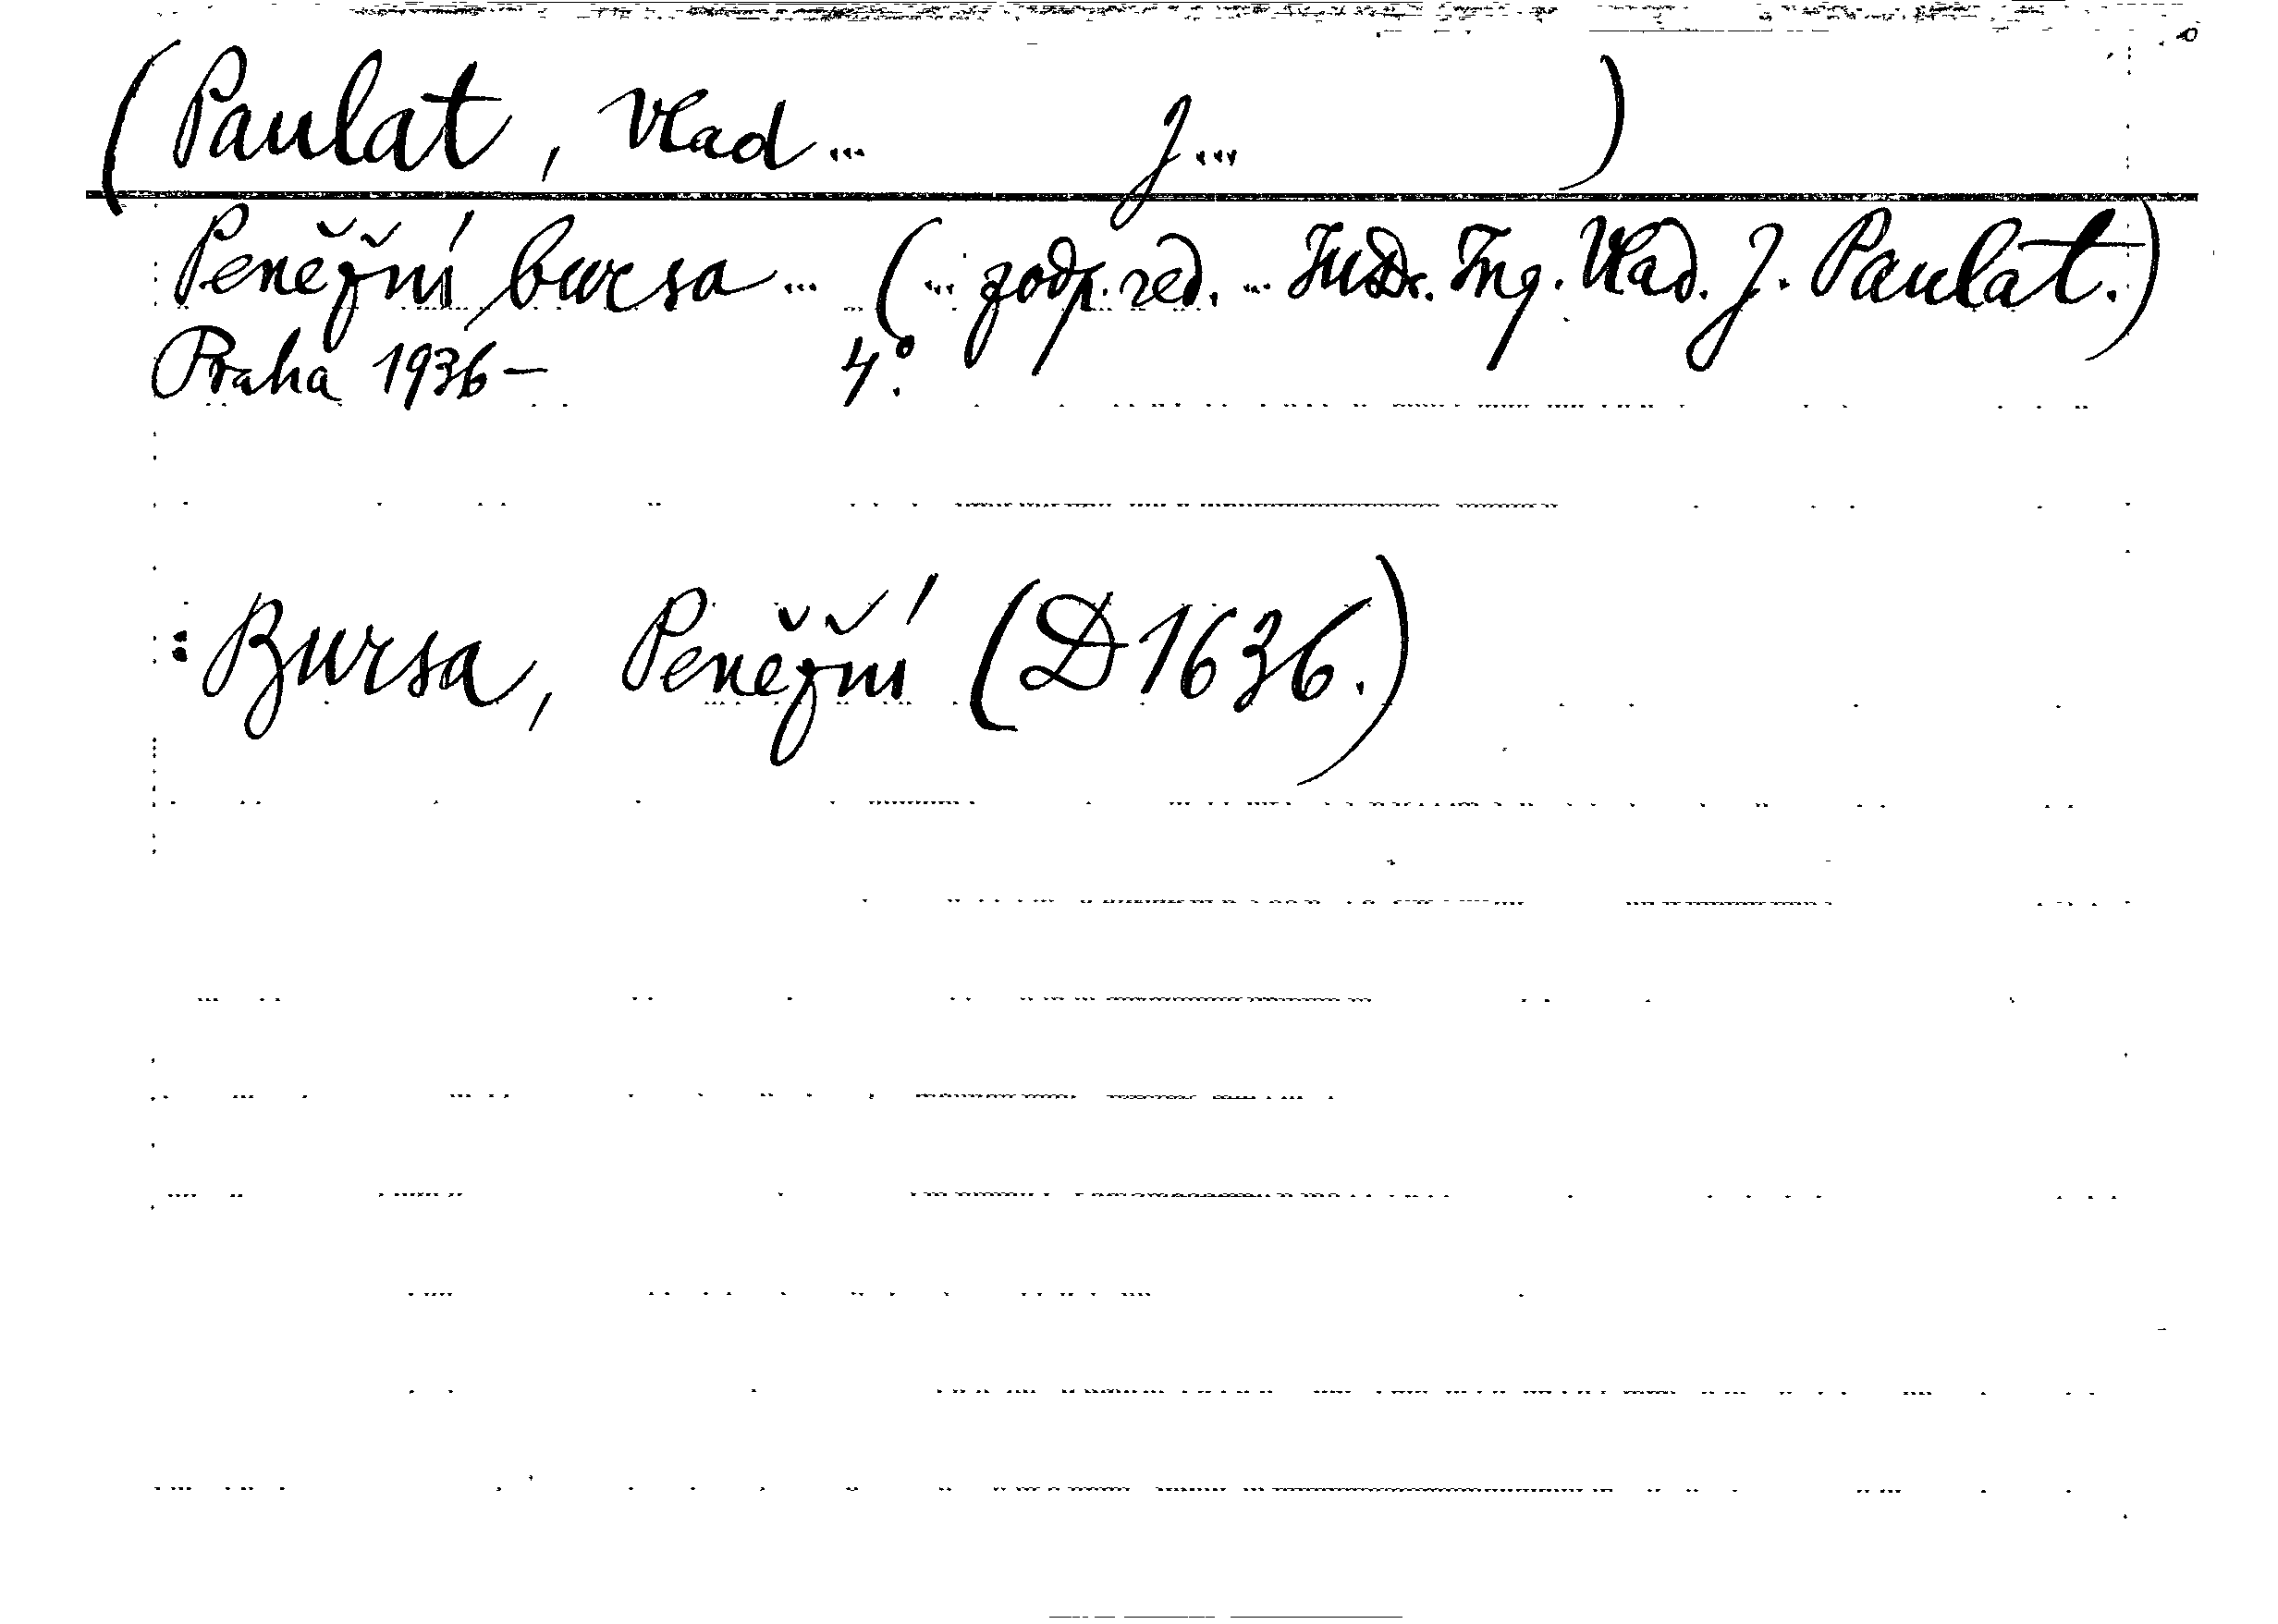 (Paulat, Vlad... J...)
Peněžní bursa... (... zodp. red. ... JUDr. Ing. Vlad. J. Paulat.)
Praha 1936- 4°.
: Bursa, Peněžní (D 1636.)